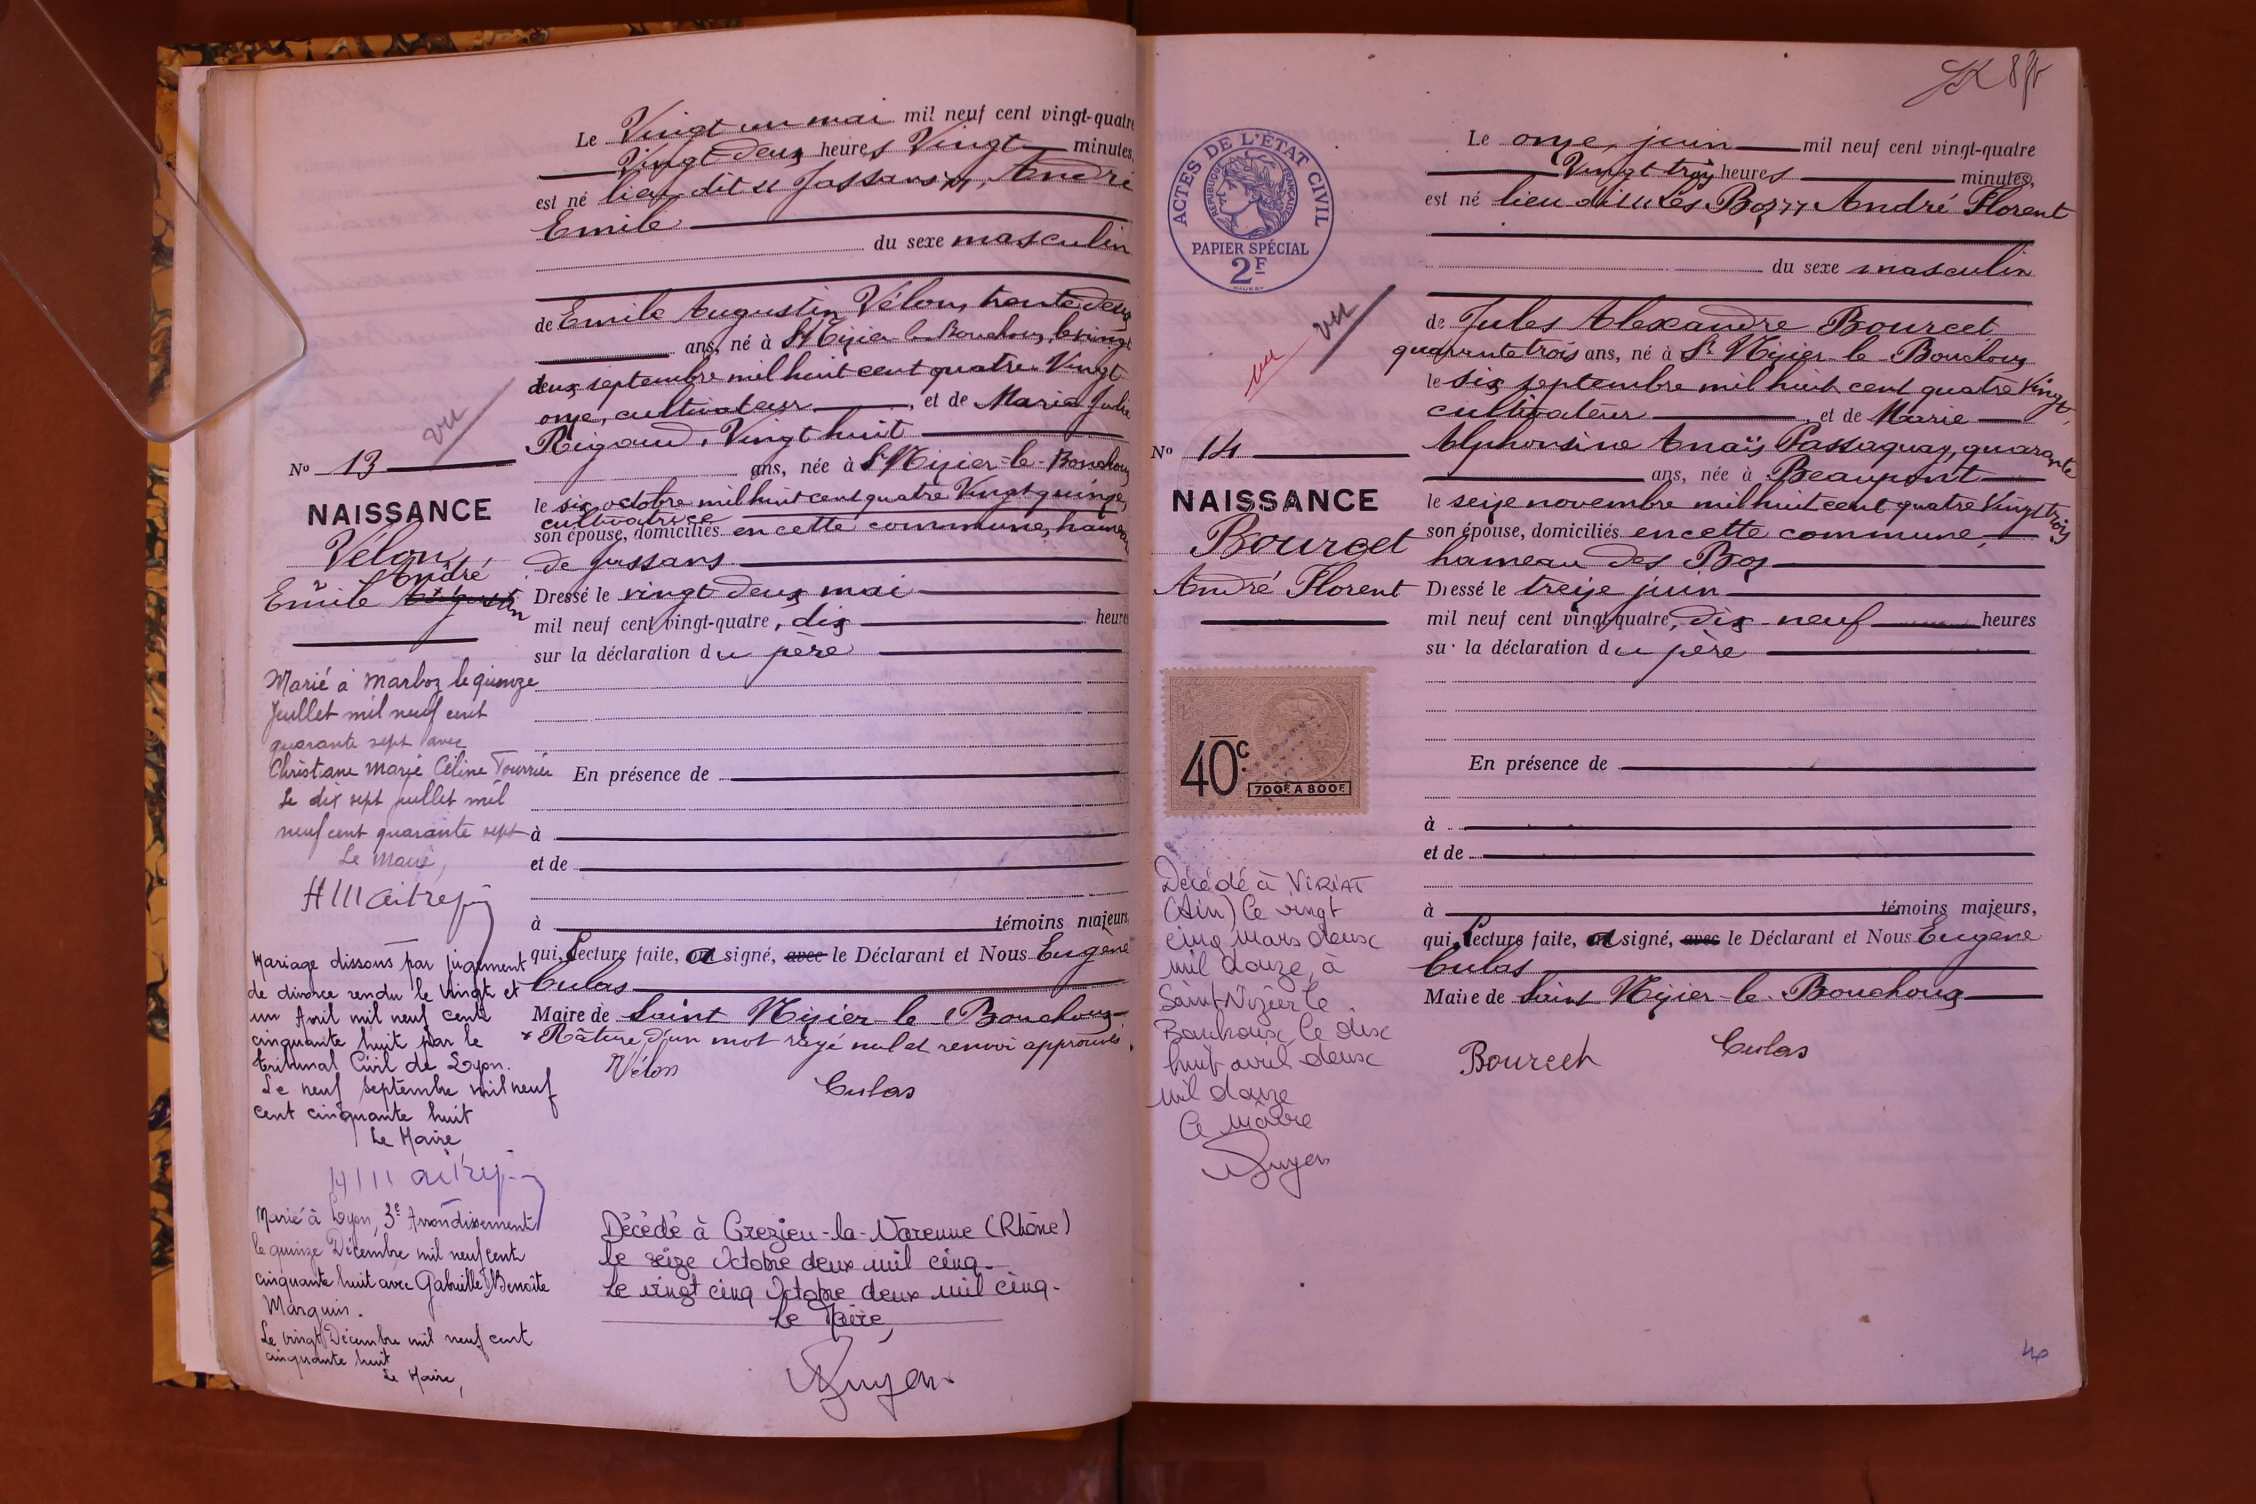 Le Vingt un mai mil neuf cent vingt-quatre
Vingt deux heures Vingt minutes,
est né lieu dit "Jassans", André
Emile
du sexe masculin
de Emile Augustin Vélon, trente deux
ans, né à St Nizier le Bouchoux, le vingt
deux septembre mil huit cent quatre Vingt
onze, cultivateur, et de Marie Julie
Rigaud, Vingt huit
ans, née à St Nizier-le-Bouchoux
le six octobre mil huit cent quatre Vingt quinze,
cultivatrice
son épouse, domiciliés en cette commune, hameau
de Jassans
Dressé le vingt deux mai
mil neuf cent vingt-quatre, dix heures
sur la déclaration du père
En présence de
à
et de
à témoins majeurs,
qui, Lecture faite, a signé, avec le Déclarant et Nous Eugène
Culas
Maire de Saint Nizier le Bouchoux
* Râture d'un mot rayé nul et renvoi approuvés.
Vélon
Culas
Décédé à Grezieu-la-Varenne (Rhône)
le seize Octobre deux mil cinq.
Le vingt cinq Octobre deux mil cinq.
Le Maire,
vu
No 13
NAISSANCE
Vélon,
André
Emile Augustin
Marié à Marboz le quinze
Juillet mil neuf cent
quarante sept avec
Christiane Marie Céline Tourrier
Le dix sept Juillet mil
neuf cent quarante sept
Le Maire,
Mariage dissous par jugement
de divorce rendu le vingt et
un Avril mil neuf cent
cinquante huit par le
tribunal Civil de Lyon.
Le neuf septembre mil neuf
cent cinquante huit
Le Maire
Marié à Lyon, 3e Arrondissement
le quinze Décembre mil neuf cent
cinquante huit avec Gabrielle Benoîte
Marquis.
Le vingt Décembre mil neuf cent
cinquante huit
Le Maire,
8
ACTES DE L'ÉTAT CIVIL
RÉPUBLIQUE FRANÇAISE
PAPIER SPÉCIAL
2F
vu
vu
No 14
NAISSANCE
Bourcet
André Florent
40c
700F A 800F
Décédé à VIRIAT
(Ain) le vingt
cinq mars deux
mil douze, à
Saint-Nizier le
Bouchoux le dix
huit avril deux
mil douze
Le Maire
Le onze juin mil neuf cent vingt-quatre
Vingt trois heures minutes,
est né lieu dit "Les Boz" André Florent
du sexe masculin
de Jules Alexandre Bourcet
quarante trois ans, né à St Nizier le Bouchoux
le six septembre mil huit cent quatre Vingt,
cultivateur, et de Marie
Alphonsine Anaïs Passaquay, quarante
ans, née à Beaupont
le seize novembre mil huit cent quatre Vingt trois
son épouse, domiciliés en cette commune,
hameau des Boz
Dressé le treize juin
mil neuf cent vingt-quatre, dix neuf heures
sur la déclaration du père
En présence de
à
et de
à témoins majeurs,
qui, Lecture faite, a signé, avec le Déclarant et Nous Eugène
Culas
Maire de Saint Nizier le Bouchoux
Bourcet
Culas